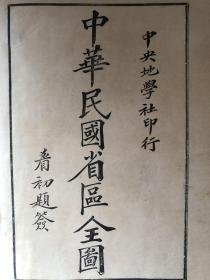 中央地學社印行
中華民國省區全圖
春初題簽